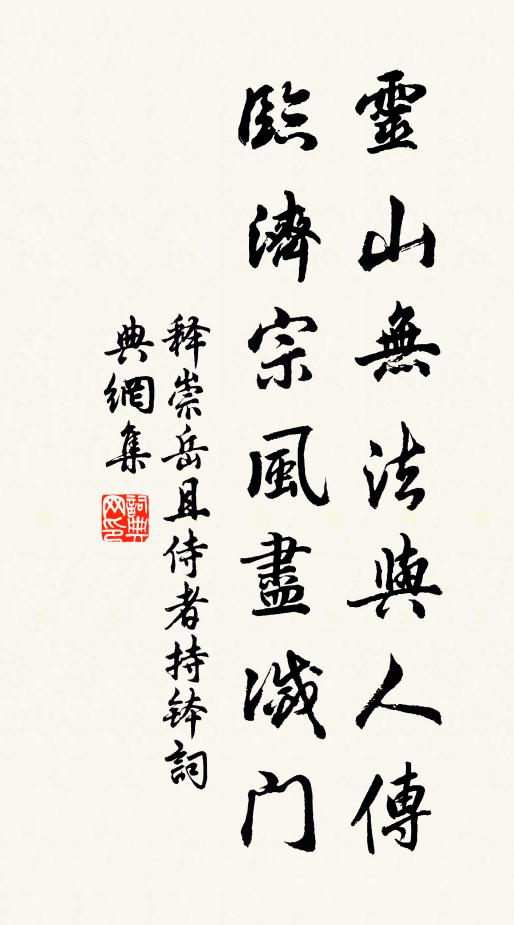 靈山無法與人傳
臨濟宗風盡滅門
释崇岳且侍者持钵詞
典網集
詞典網印